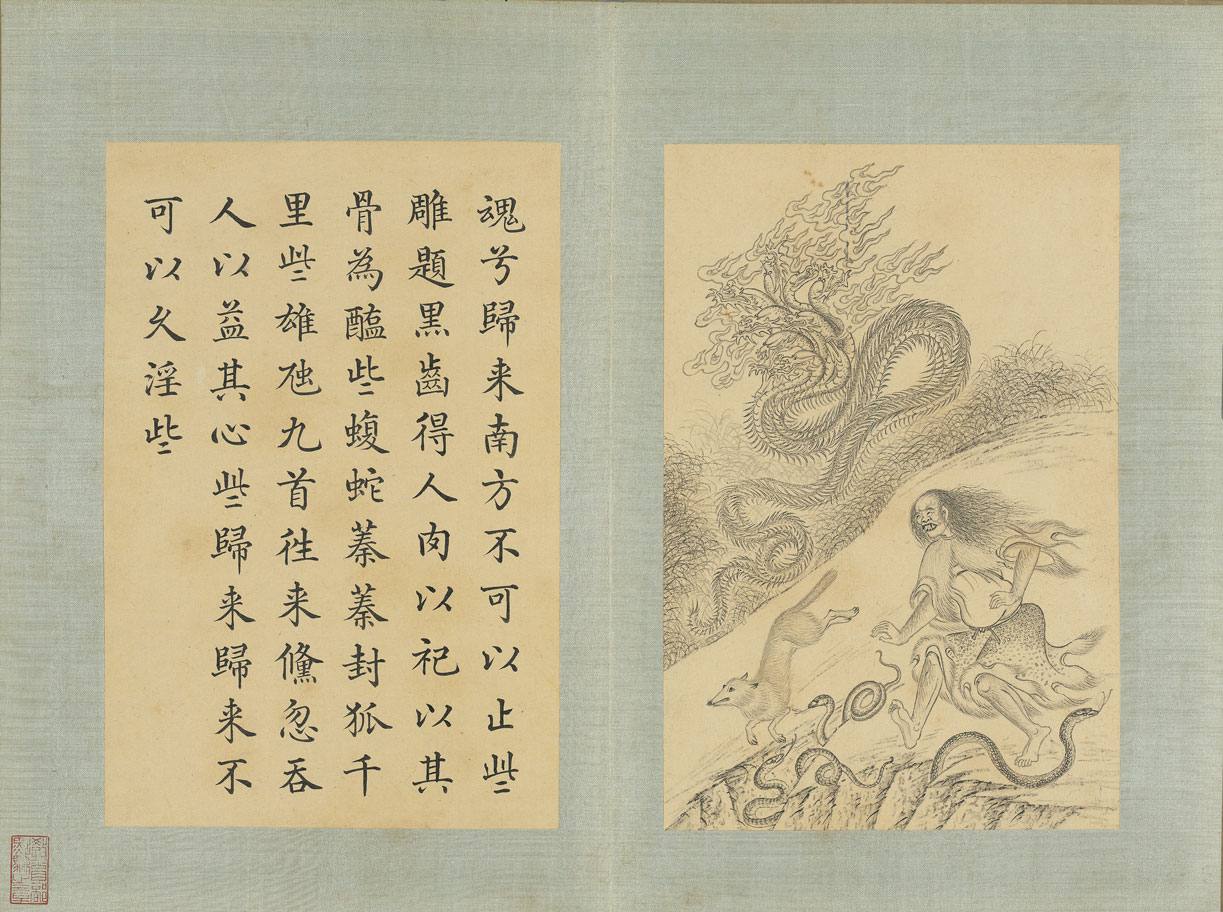 魂兮歸来南方不可以止些
雕題黒齒得人肉以祀以其
骨為醢些蝮蛇蓁蓁封狐千
里些雄虺九首往来儵忽吞
人以益其心些歸来歸来不
可以久淫些